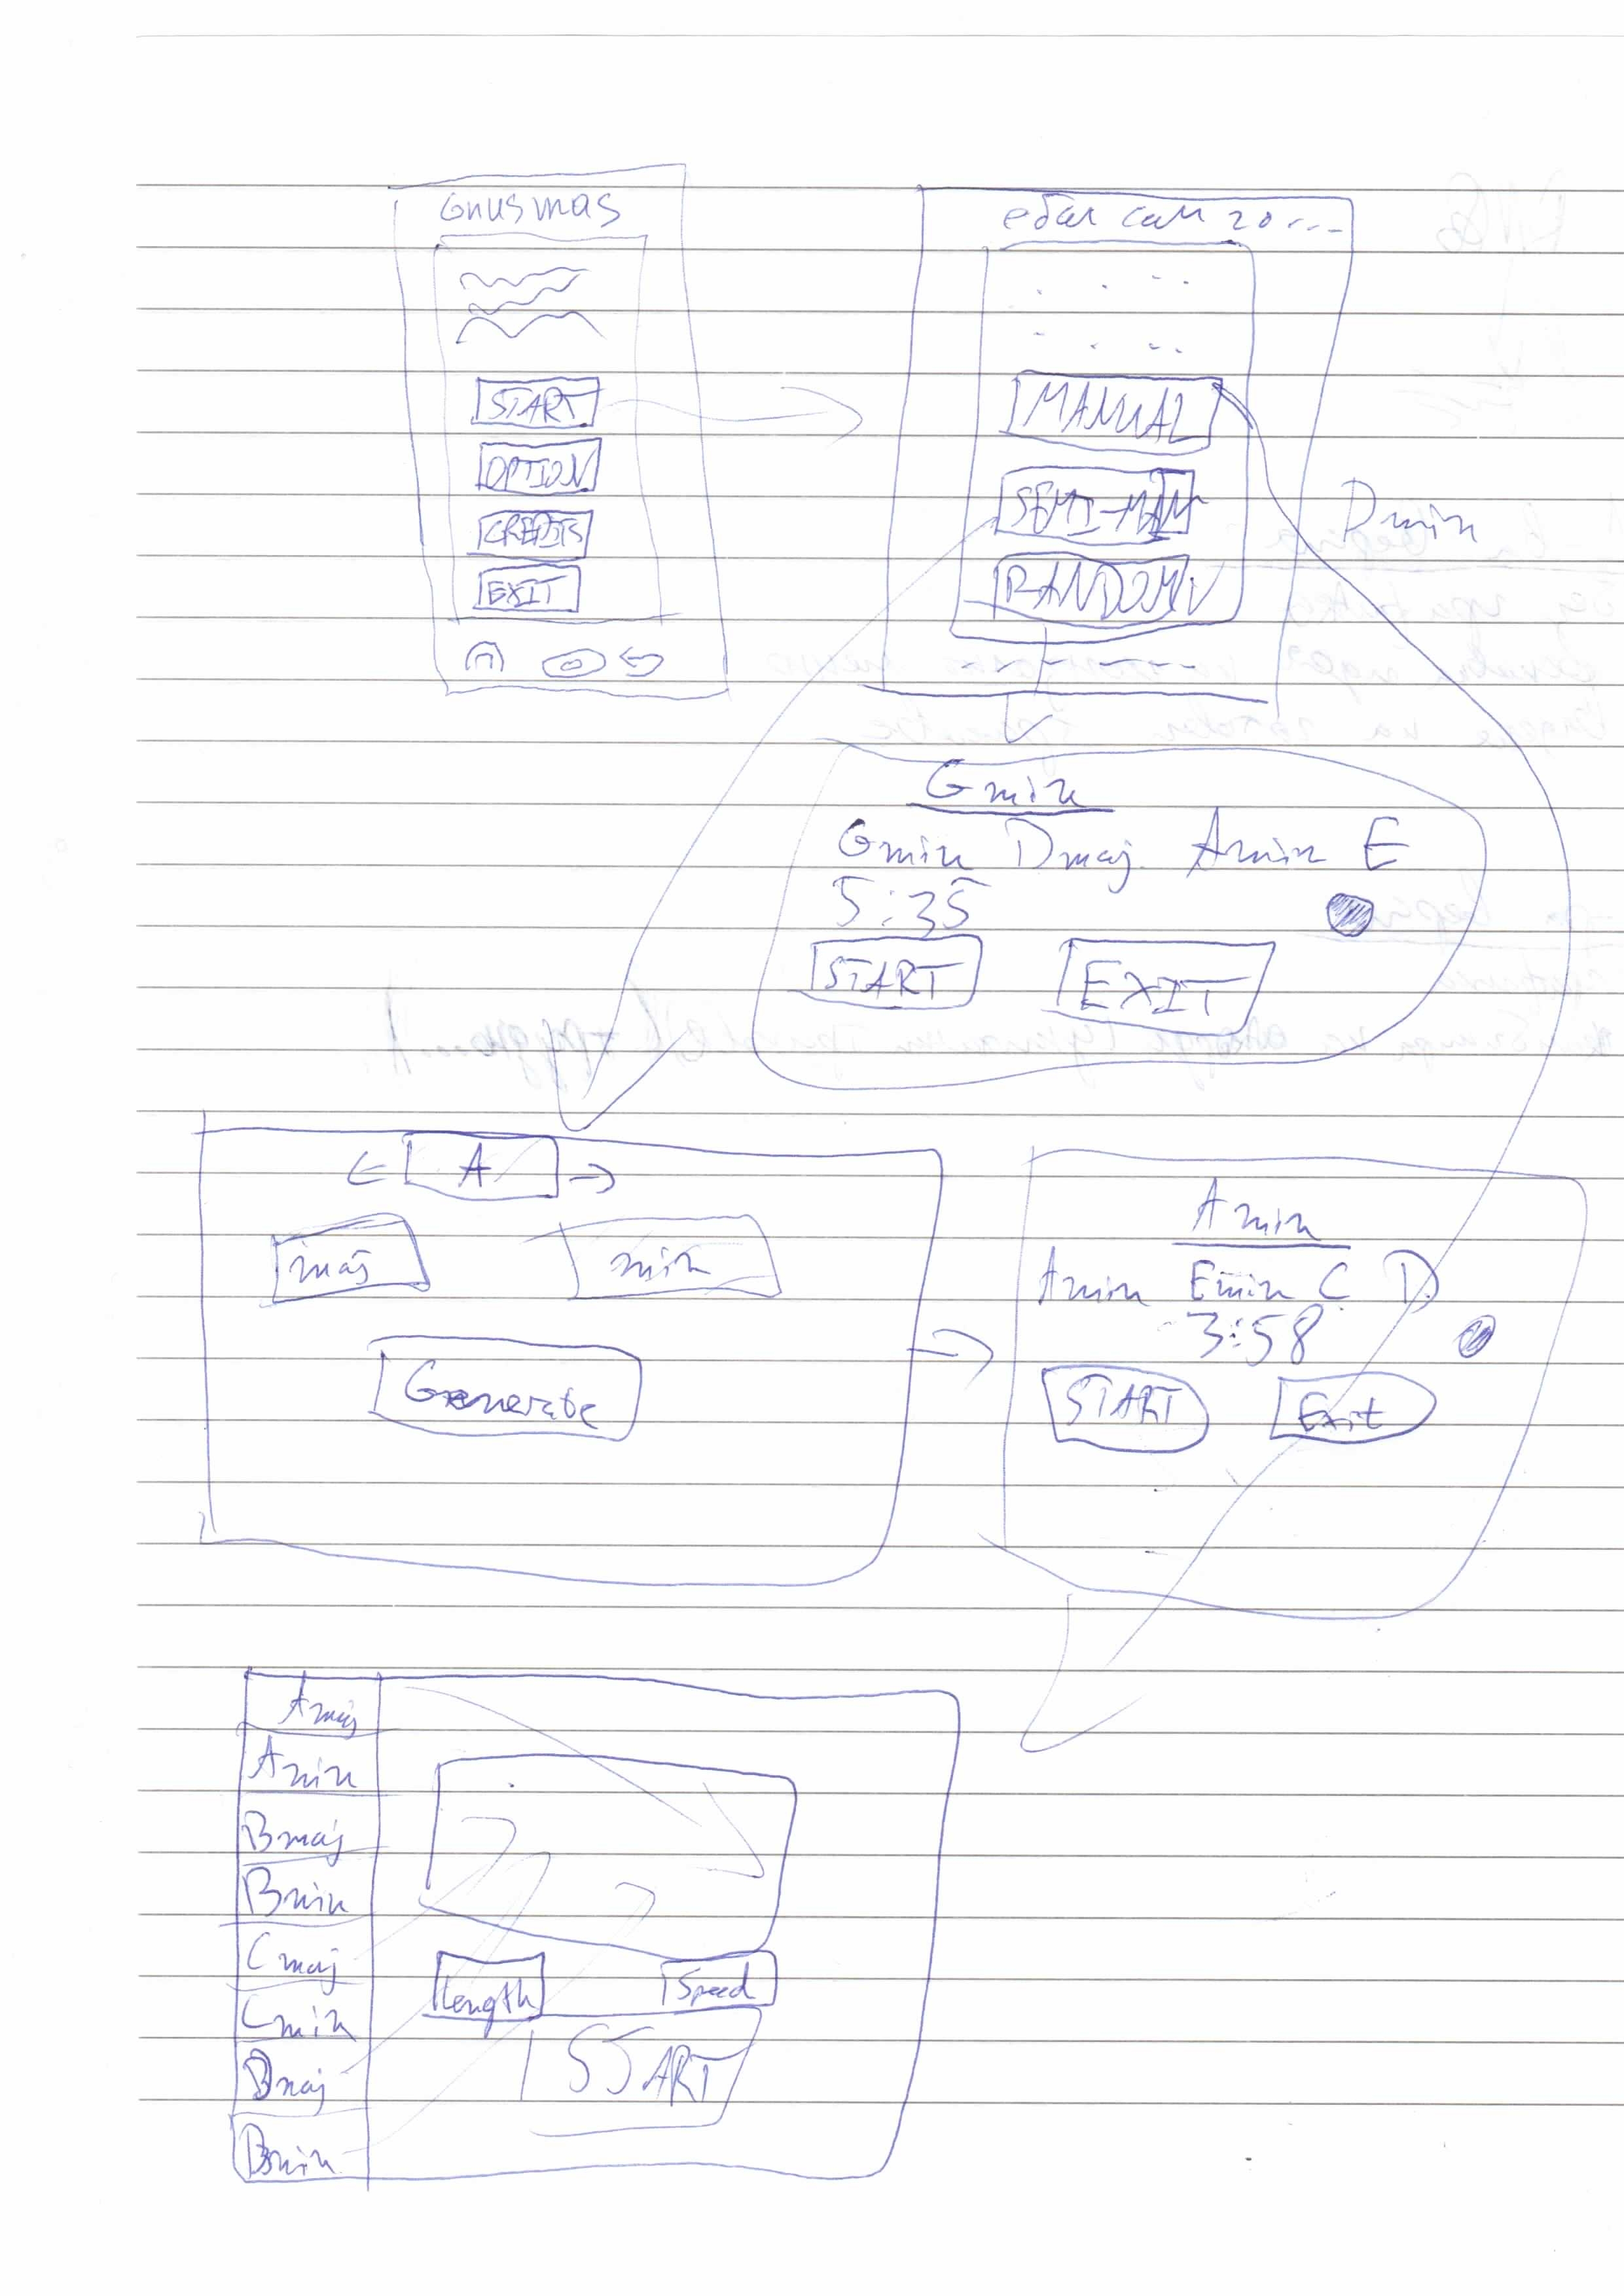 Gnusmas
START
OPTION
CREDITS
EXIT
MANUAL
SEMI-MAN
RANDOM
Dmin
Gmin
Gmin Dmaj. Amin E
5:35
START EXIT
← A →
maj min
Generate
Amin
Amin Emin C D
3:58
START Exit
Amaj
Amin
Bmaj
Bmin
Cmaj
Cmin
Dmaj
Length Speed
START